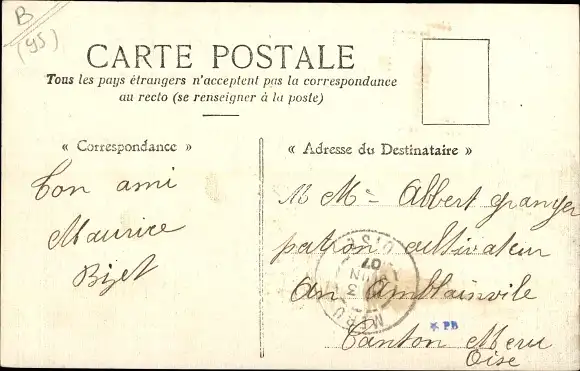 B
(95)
CARTE POSTALE
Tous les pays étrangers n'acceptent pas la correspondance
au recto (se renseigner à la poste)
« Correspondance »
Ton ami
Maurice
Bizet
« Adresse du Destinataire »
M Albert granger
patron cultivateur
An Amblainvile
Canton Meru
Oise
MERU
OISE
JUIN
07
* PB